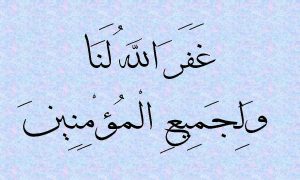 غَفَرَ اللَّهُ لَنَا
وَلِجَمِيعِ الْمُؤْمِنِينَ